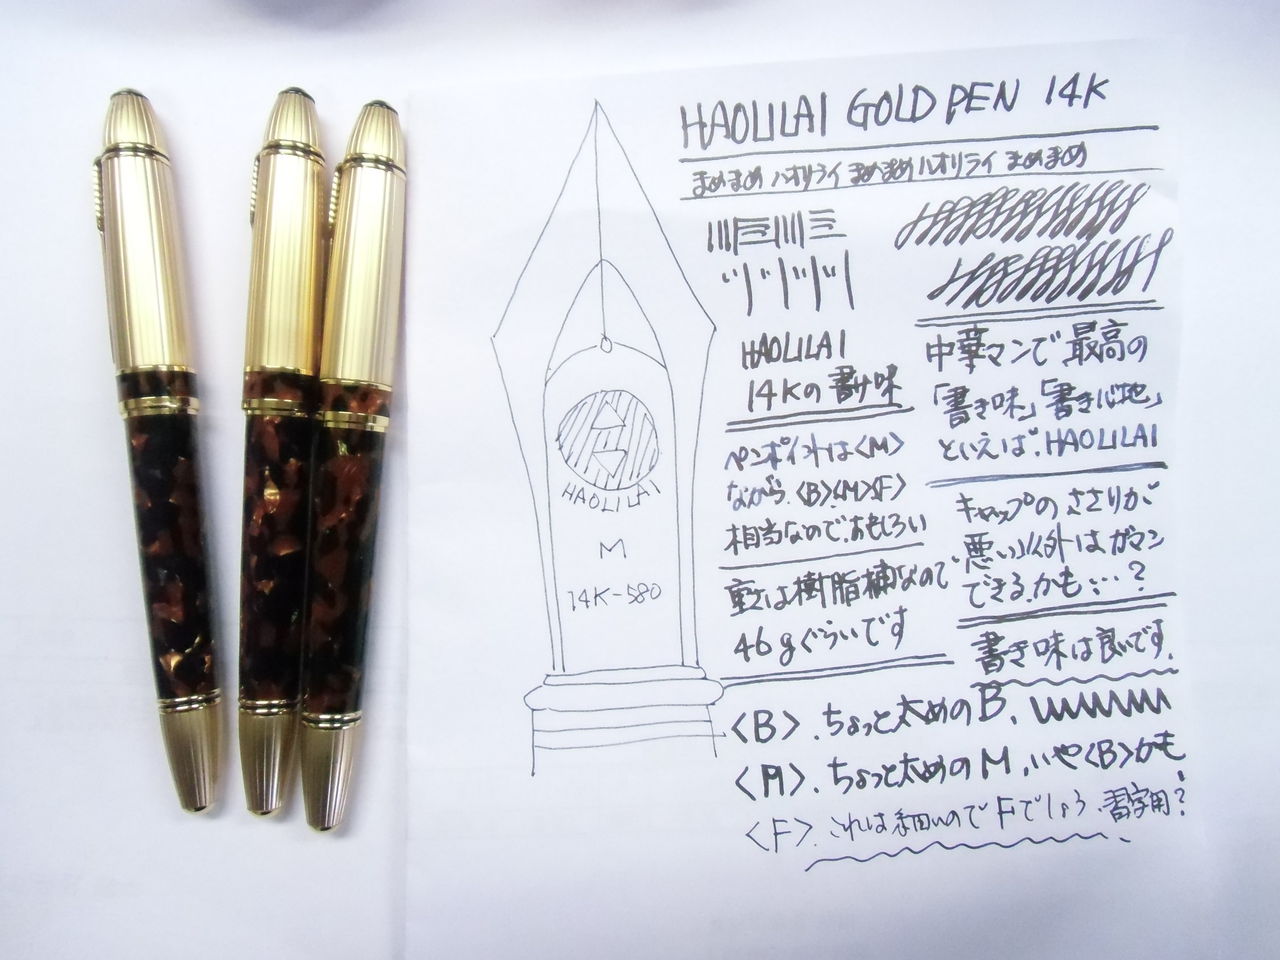 HAOLILAI GOLD PEN 14K
まめまめ ハオリライ まめまめ ハオリライ まめまめ
HAOLILAI
14Kの書け味
ペンポイントは<M>
ながら.<B><M><F>
相当なので.おもしろい
重さは樹脂補なので
46gぐらいです
中華マンで最高の
「書き味」「書き心地」
といえば.HAOLILAI
キャップのささりが
悪い以外はガマン
できる.かも…?
書き味は良いです.
HAOLILAI
M
14K-580
<B>.ちょっと太めのB.
<M>.ちょっと太めのM.いや<B>かも
<F>.これは細いのでFでしょう.習字用?